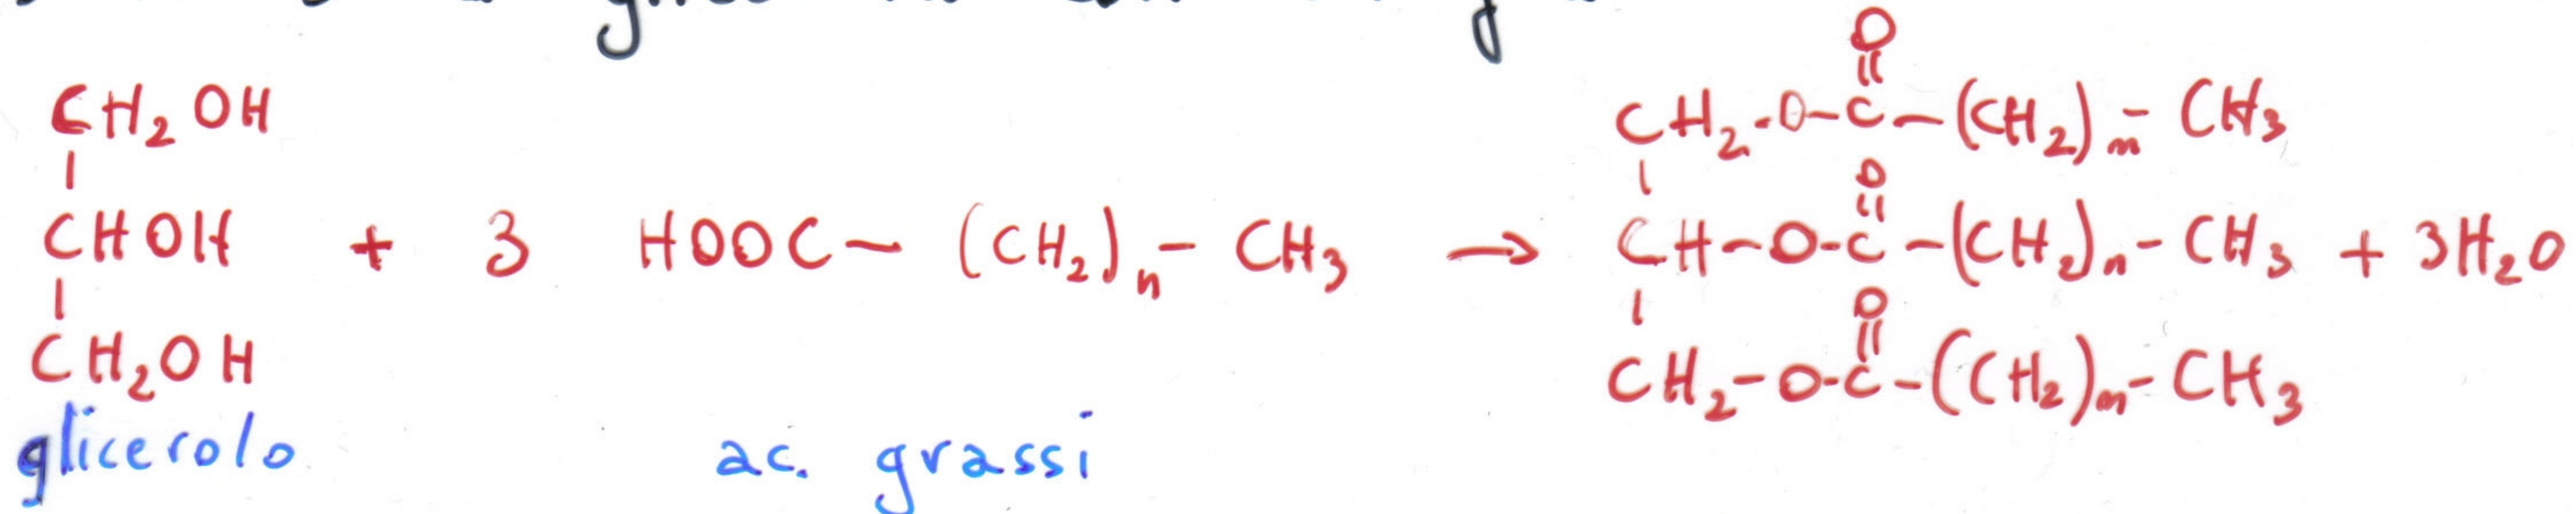 CH₂OH
CHOH + 3 HOOC – (CH₂)ₙ – CH₃ →
CH₂OH
O
CH₂-O-C-(CH₂)ₙ-CH₃
O
CH-O-C-(CH₂)ₙ-CH₃ + 3H₂O
O
CH₂-O-C-(CH₂)ₙ-CH₃
glicerolo
ac. grassi